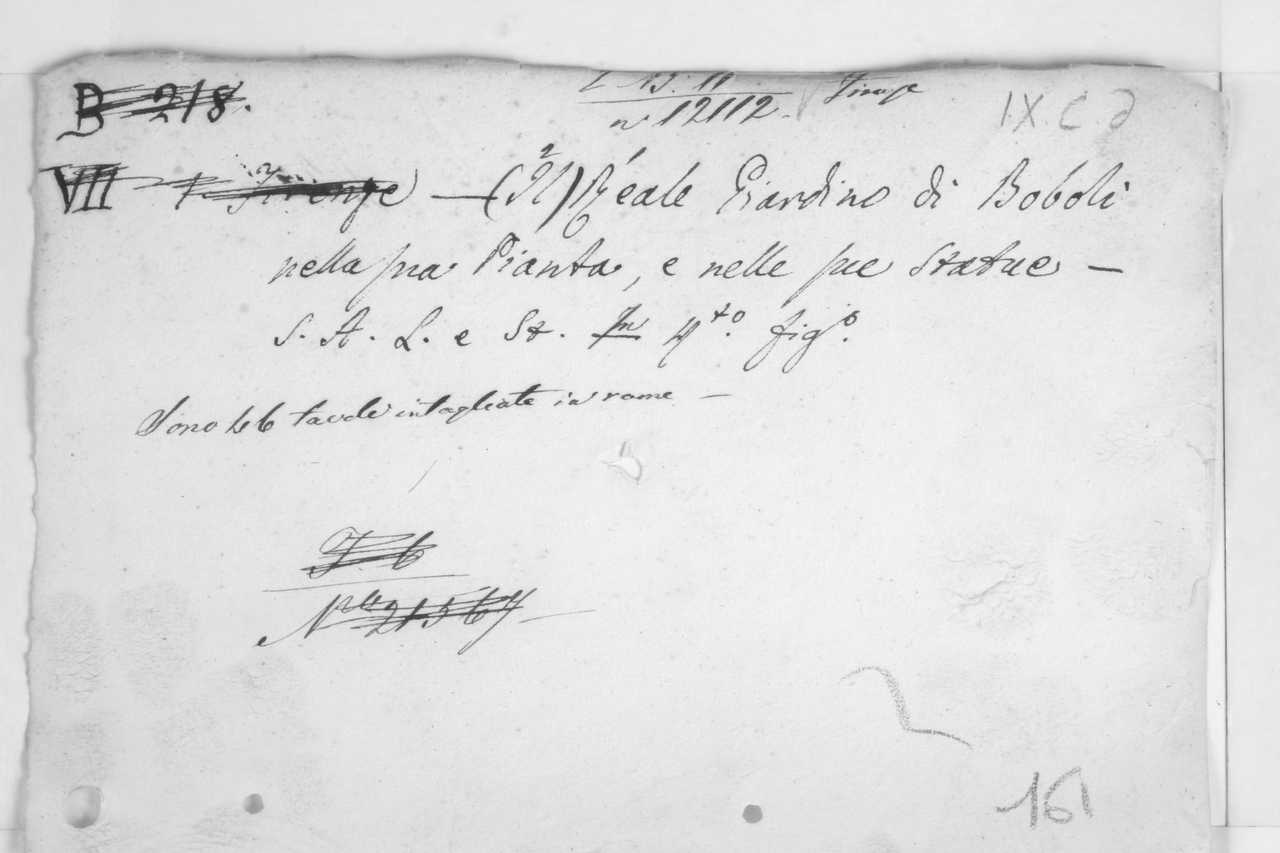 B 218.
n° 12112. Firenze
IX. C. d
VII Firenze — (Il) Reale Giardino di Boboli
nella sua Pianta, e nelle sue Statue —
S. A. L. e St. In 4to. figo.
Sono 46 tavole intagliate in rame —
F. 6
Nro 21567
161